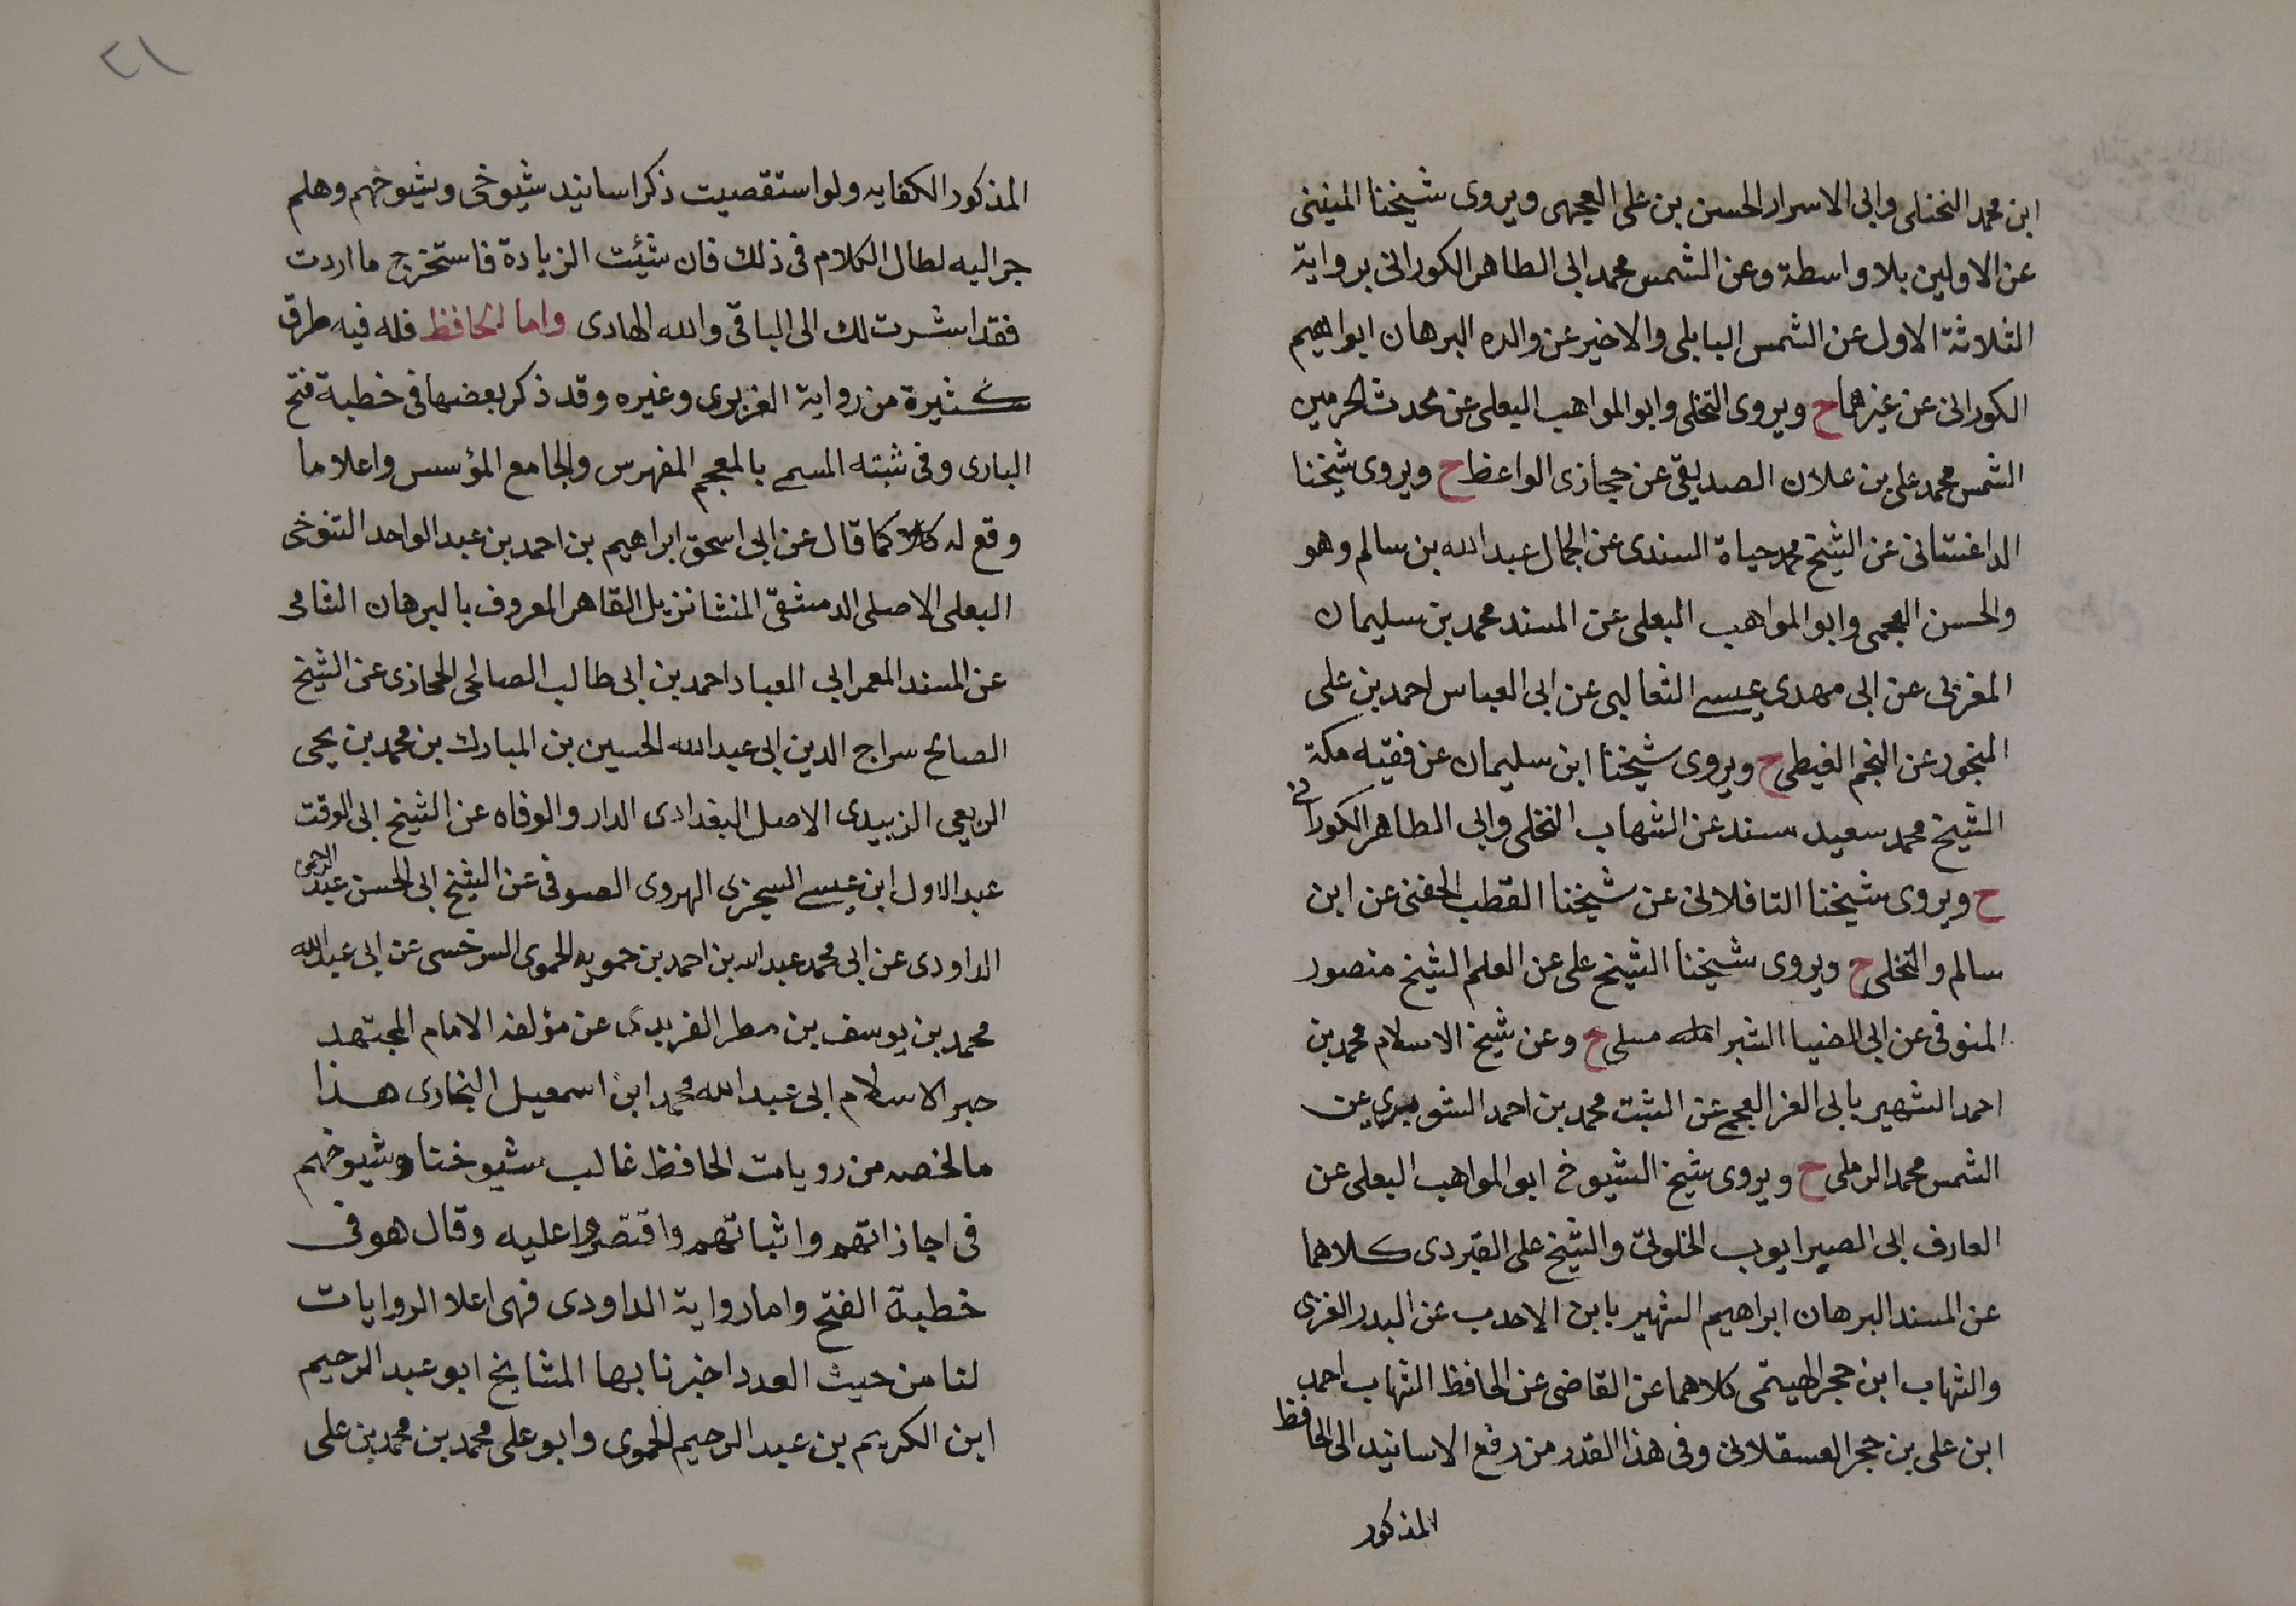 ابن محمد النخلى وابى الاسرار الحسن بن على العجمى ويروى شيخنا المنينى
عن الاولين بلا واسطة وعن الشمس محمد ابى الطاهر الكورانى برواية
الثلاثة الاول عن الشمس البابلى والاخير عن والده البرهان ابراهيم
الكورانى عن غيرهما ح ويروى النخلى وابو المواهب البعلى عن محدث الحرمين
الشمس محمد على بن علان الصديقى عن حجازى الواعظ ح ويروى شيخنا
الداغستانى عن الشيخ محمد حياة السندى عن الجمال عبد الله بن سالم وهو
والحسن العجمى وابو المواهب البعلى عن المسند محمد بن سليمان
المغربى عن ابى مهدى عيسى الثعالبى عن ابى العباس احمد بن على
المنجور عن النجم الغيطى ح ويروى شيخنا ابن سليمان عن فقيه مكة
الشيخ محمد سعيد سند عن الشهاب النخلى وابى الطاهر الكورانى
ح ويروى شيخنا التافلاتى عن شيخنا القطب الحفنى عن ابن
سالم والنخلى ح ويروى شيخنا الشيخ على عن العلم الشيخ منصور
المنوفى عن ابى الضيا الشبراملسى ح وعن شيخ الاسلام محمد بن
احمد الشهير بابى العز العجمى عن المثبت محمد بن احمد الشوبرى عن
الشمس محمد الرملى ح ويروى شيخ الشيوخ ابو المواهب البعلى عن
العارف ابى الصبر ايوب الخلوتى والشيخ على القبردى كلاهما
عن المسند البرهان ابراهيم الشهير بابن الاحدب عن البدر الغزى
والشهاب ابن حجر الهيتمى كلاهما عن القاضى عن الحافظ الشهاب احمد
ابن على بن حجر العسقلانى وفى هذا القدر من رفع الاسانيد الى الحافظ
المذكور
٢١
المذكور الكفايه ولو استقصيت ذكر اسانيد شيوخى وشيوخهم وهلم
جر اليه لطال الكلام فى ذلك فان شئت الزيادة فاستخرج ما اردت
فقد اشرت لك الى الباقى والله الهادى واما الحافظ فله فيه طرق
كثيرة من رواية الفربرى وغيره وقد ذكر بعضها فى خطبة فتح
البارى وفى ثبته المسمى بالمعجم المفهرس والجامع المؤسس واعلا ما
وقع له كما قال عن ابى اسحق ابراهيم بن احمد بن عبد الواحد التنوخى
البعلى الاصلى الدمشقى المنشا نزيل القاهر المعروف بالبرهان الشامى
عن المسند المعمر ابى العباد احمد بن ابى طالب الصالحى الحجازى عن الشيخ
الصالح سراج الدين ابى عبد الله الحسين بن المبارك بن محمد بن يحيى
الربعى الزبيدى الاصل البغدادى الدار والوفاه عن الشيخ ابى الوقت
عبد الاول ابن عيسى السجزى الهروى الصوفى عن الشيخ ابى الحسن عبد الرحمن
الداودى عن ابى محمد عبد الله بن احمد بن حمويه الحموى السرخسى عن ابى عبد الله
محمد بن يوسف بن مطر الفربرى عن مؤلفه الامام المجتهد
حبر الاسلام ابى عبد الله محمد ابن اسمعيل البخارى هذا
ما لخصه من رويات الحافظ غالب شيوخنا وشيوخهم
فى اجازاتهم واثباتهم واقتصروا عليه وقال هو فى
خطبة الفتح واما رواية الداودى فهى اعلا الروايات
لنا من حيث العدد اخبرنا بها المشايخ ابو عبد الرحيم
ابن الكريم بن عبد الرحيم الحموى وابو على محمد بن محمد بن على